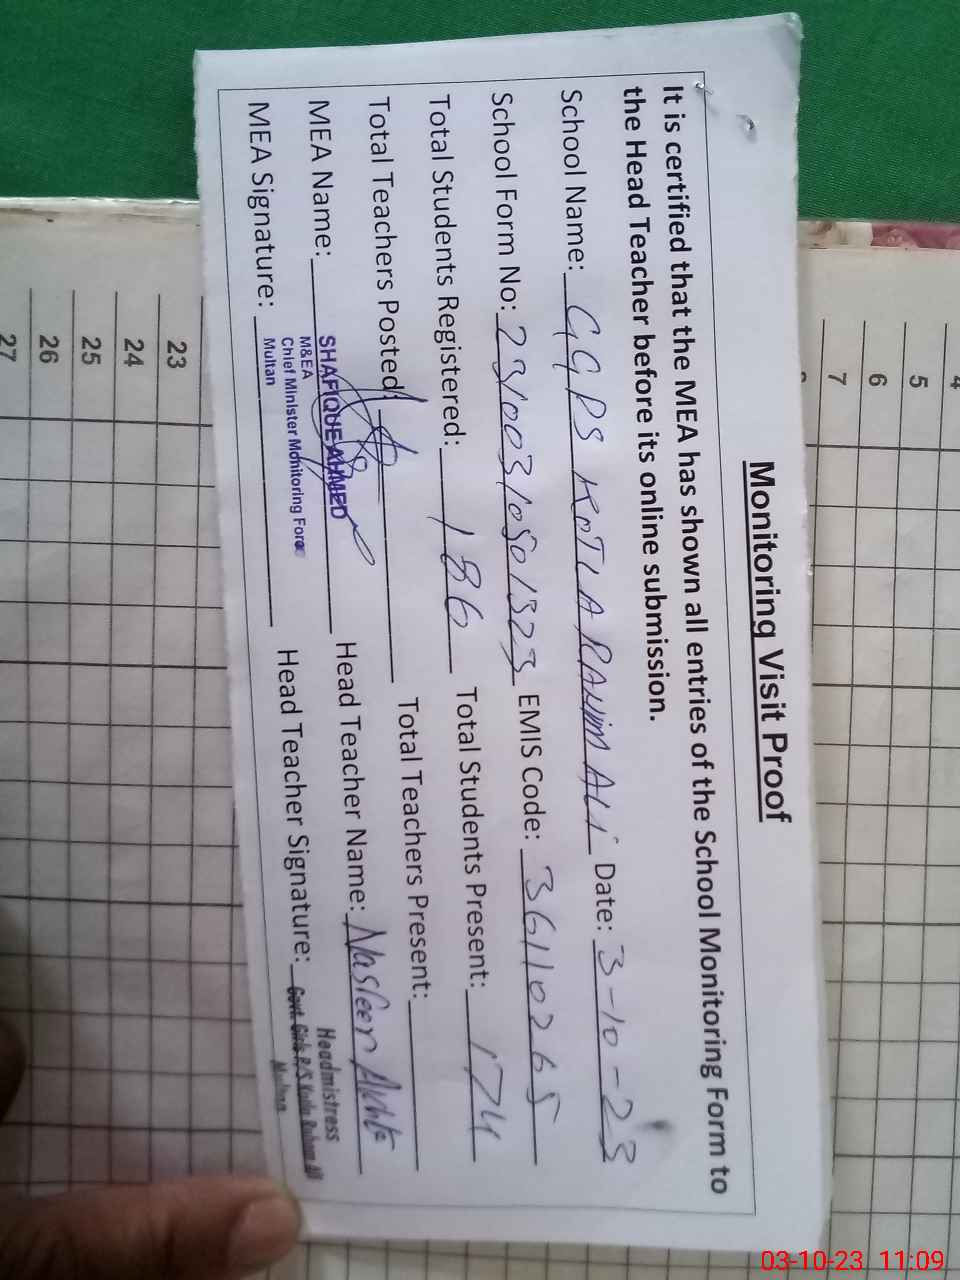 Monitoring Visit Proof
It is certified that the MEA has shown all entries of the School Monitoring Form to
the Head Teacher before its online submission.
School Name: GGPS KOTLA RAHIM ALI Date: 3-10-23
School Form No: EMIS Code: 36110265
Total Students Registered: 186 Total Students Present: 174
Total Teachers Posted: Total Teachers Present:
MEA Name: SHAFIQUE AHMED Head Teacher Name: Nasreen Akhtar
M&EA
Chief Minister Monitoring Force
Multan
MEA Signature: Head Teacher Signature:
Headmistress
Govt. Girls P/S Kotla Raham Ali
Multan
4
5
6
7
23
24
25
26
27
03-10-23 11:09